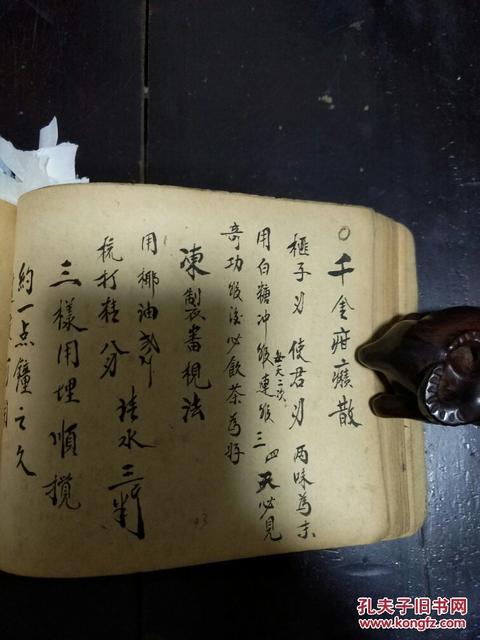 千金疳散
榧子 使君 两味為末
用白糖冲服連服三四天必見
每天二次
奇功服後必飲茶為好
凍製畨梘法
用椰油弍斤
梳打精 清水三斤
三樣用埋順攪
約一点鐘之久
孔夫子旧书网
www.kongfz.com